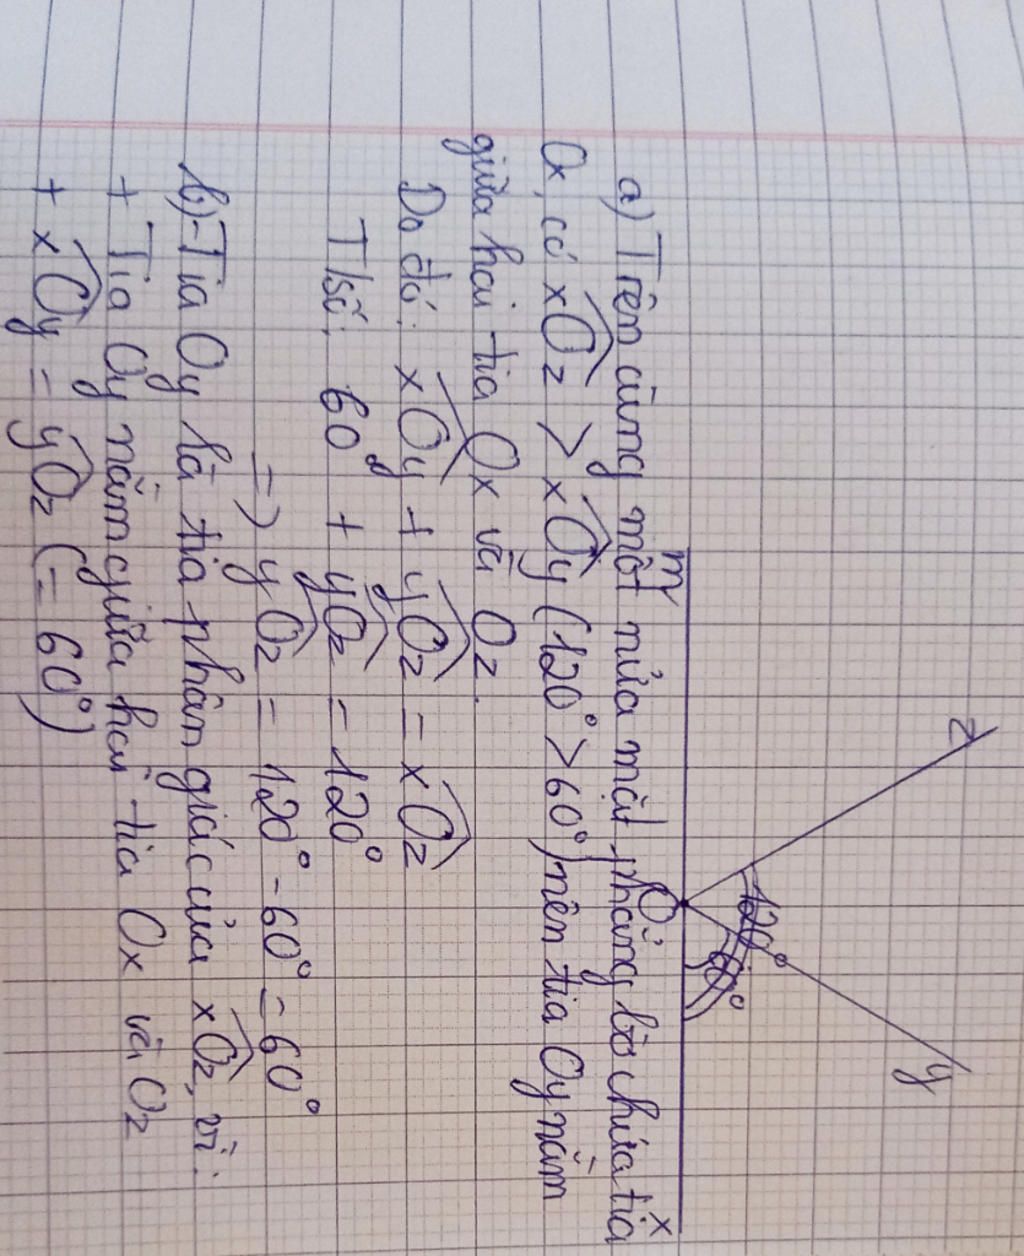 z
y
120°
60°
m
O
x
a) Trên cùng một nửa mặt phẳng bờ chứa tia
Ox, có xOz > xOy (120° > 60°) nên tia Oy nằm
giữa hai tia Ox và Oz.
Do đó: xOy + yOz = xOz
T/số: 60° + yOz = 120°
=) yOz = 120° - 60° = 60°
b) - Tia Oy là tia phân giác của xOz, vì:
+ Tia Oy nằm giữa hai tia Ox và Oz
+ xOy = yOz (= 60°)